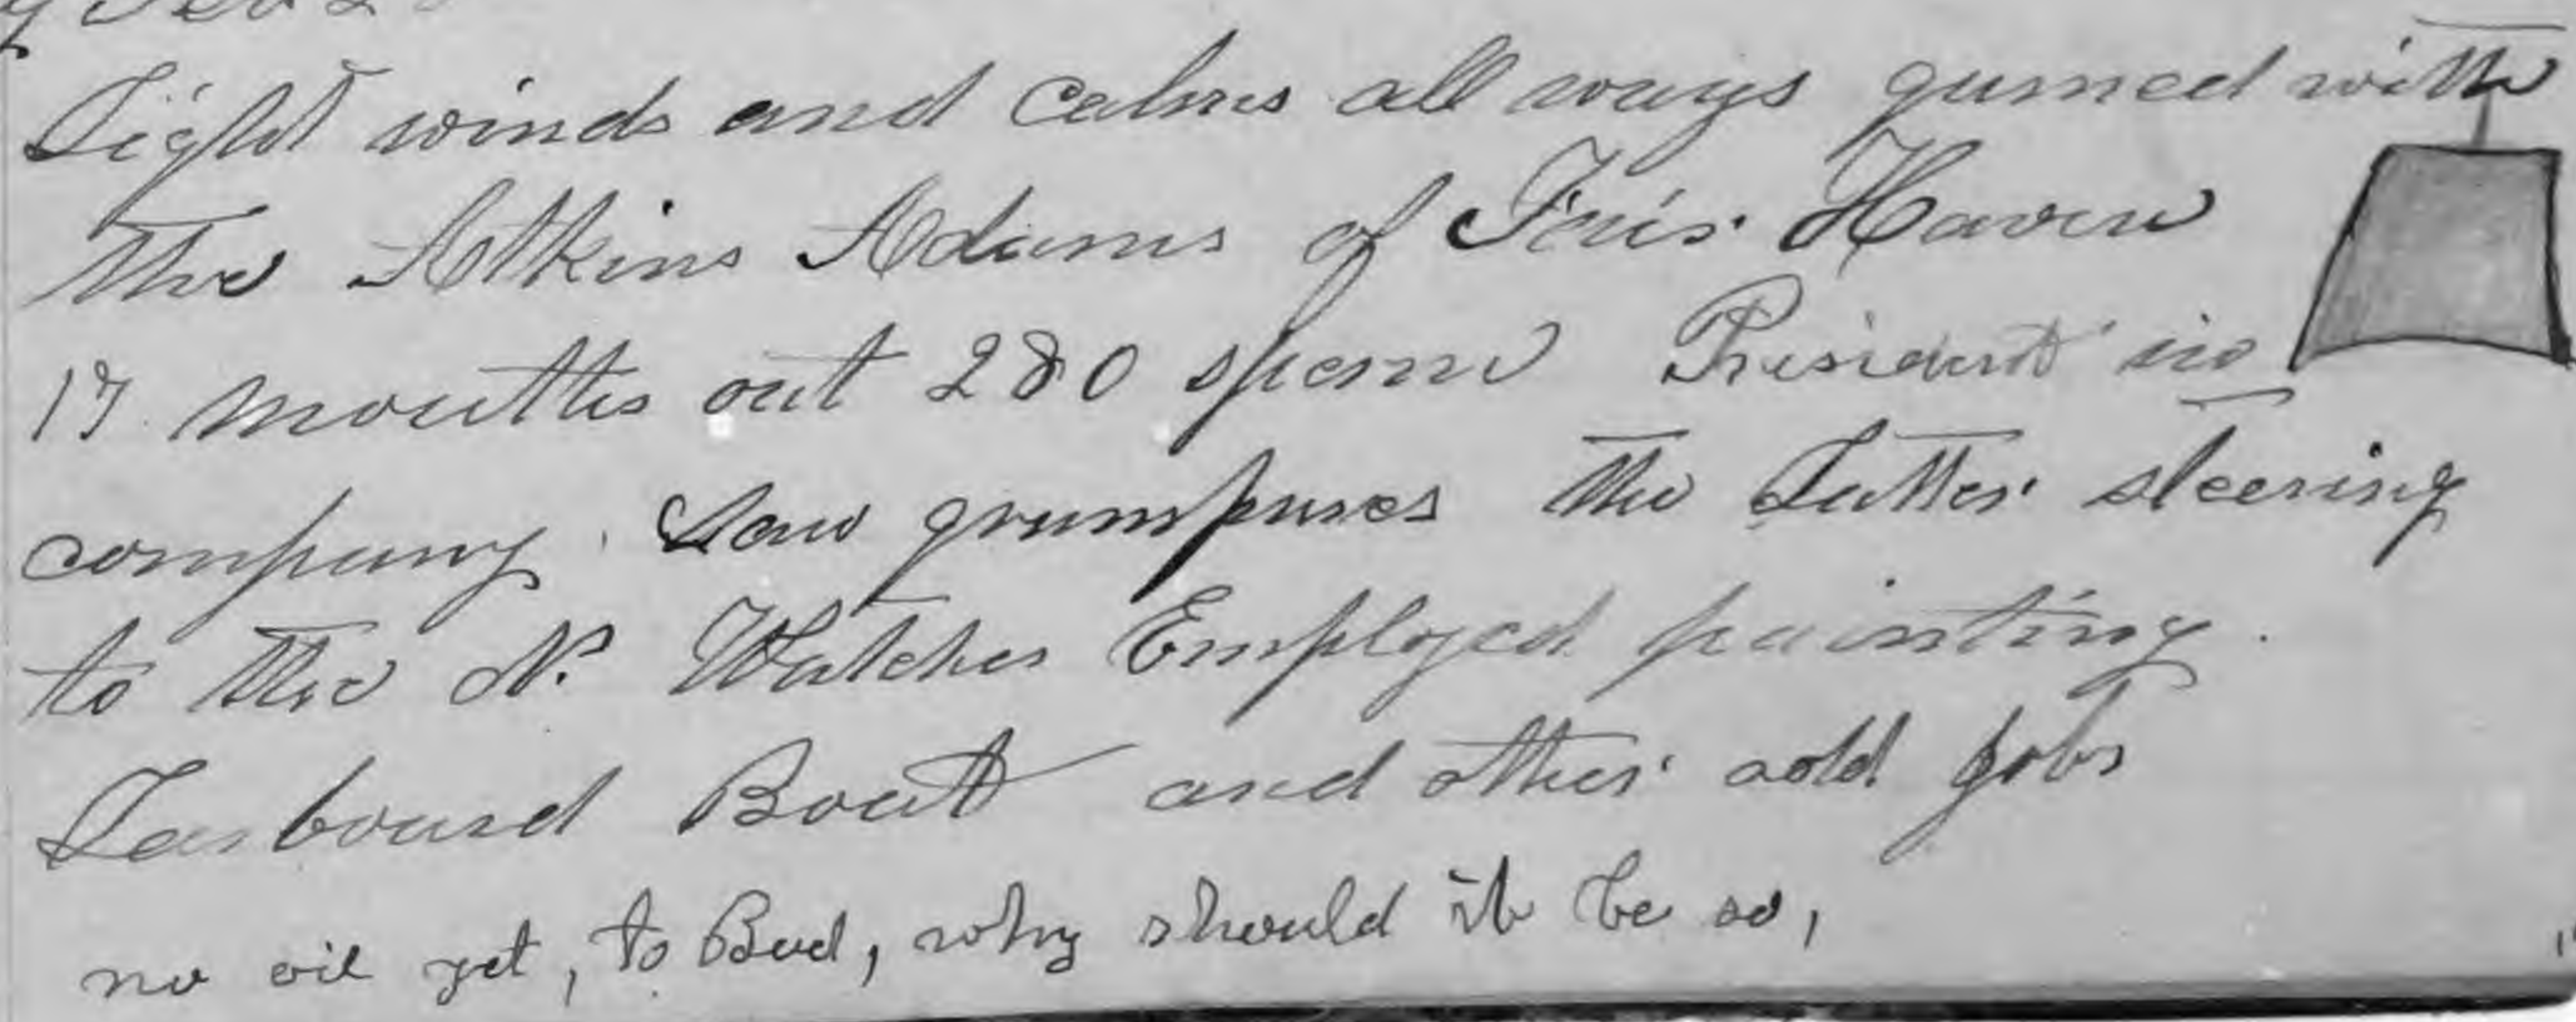 Light winds and calms all ways gumed with
the Atkins Adams of Fair Haven
17 months out 280 sperm President in
company. Saw grumpuses the Latter steering
to the N. Watches Employed painting.
Larbourd Boat and other odd jobs
no oil yet, to Bad, why should it be so,